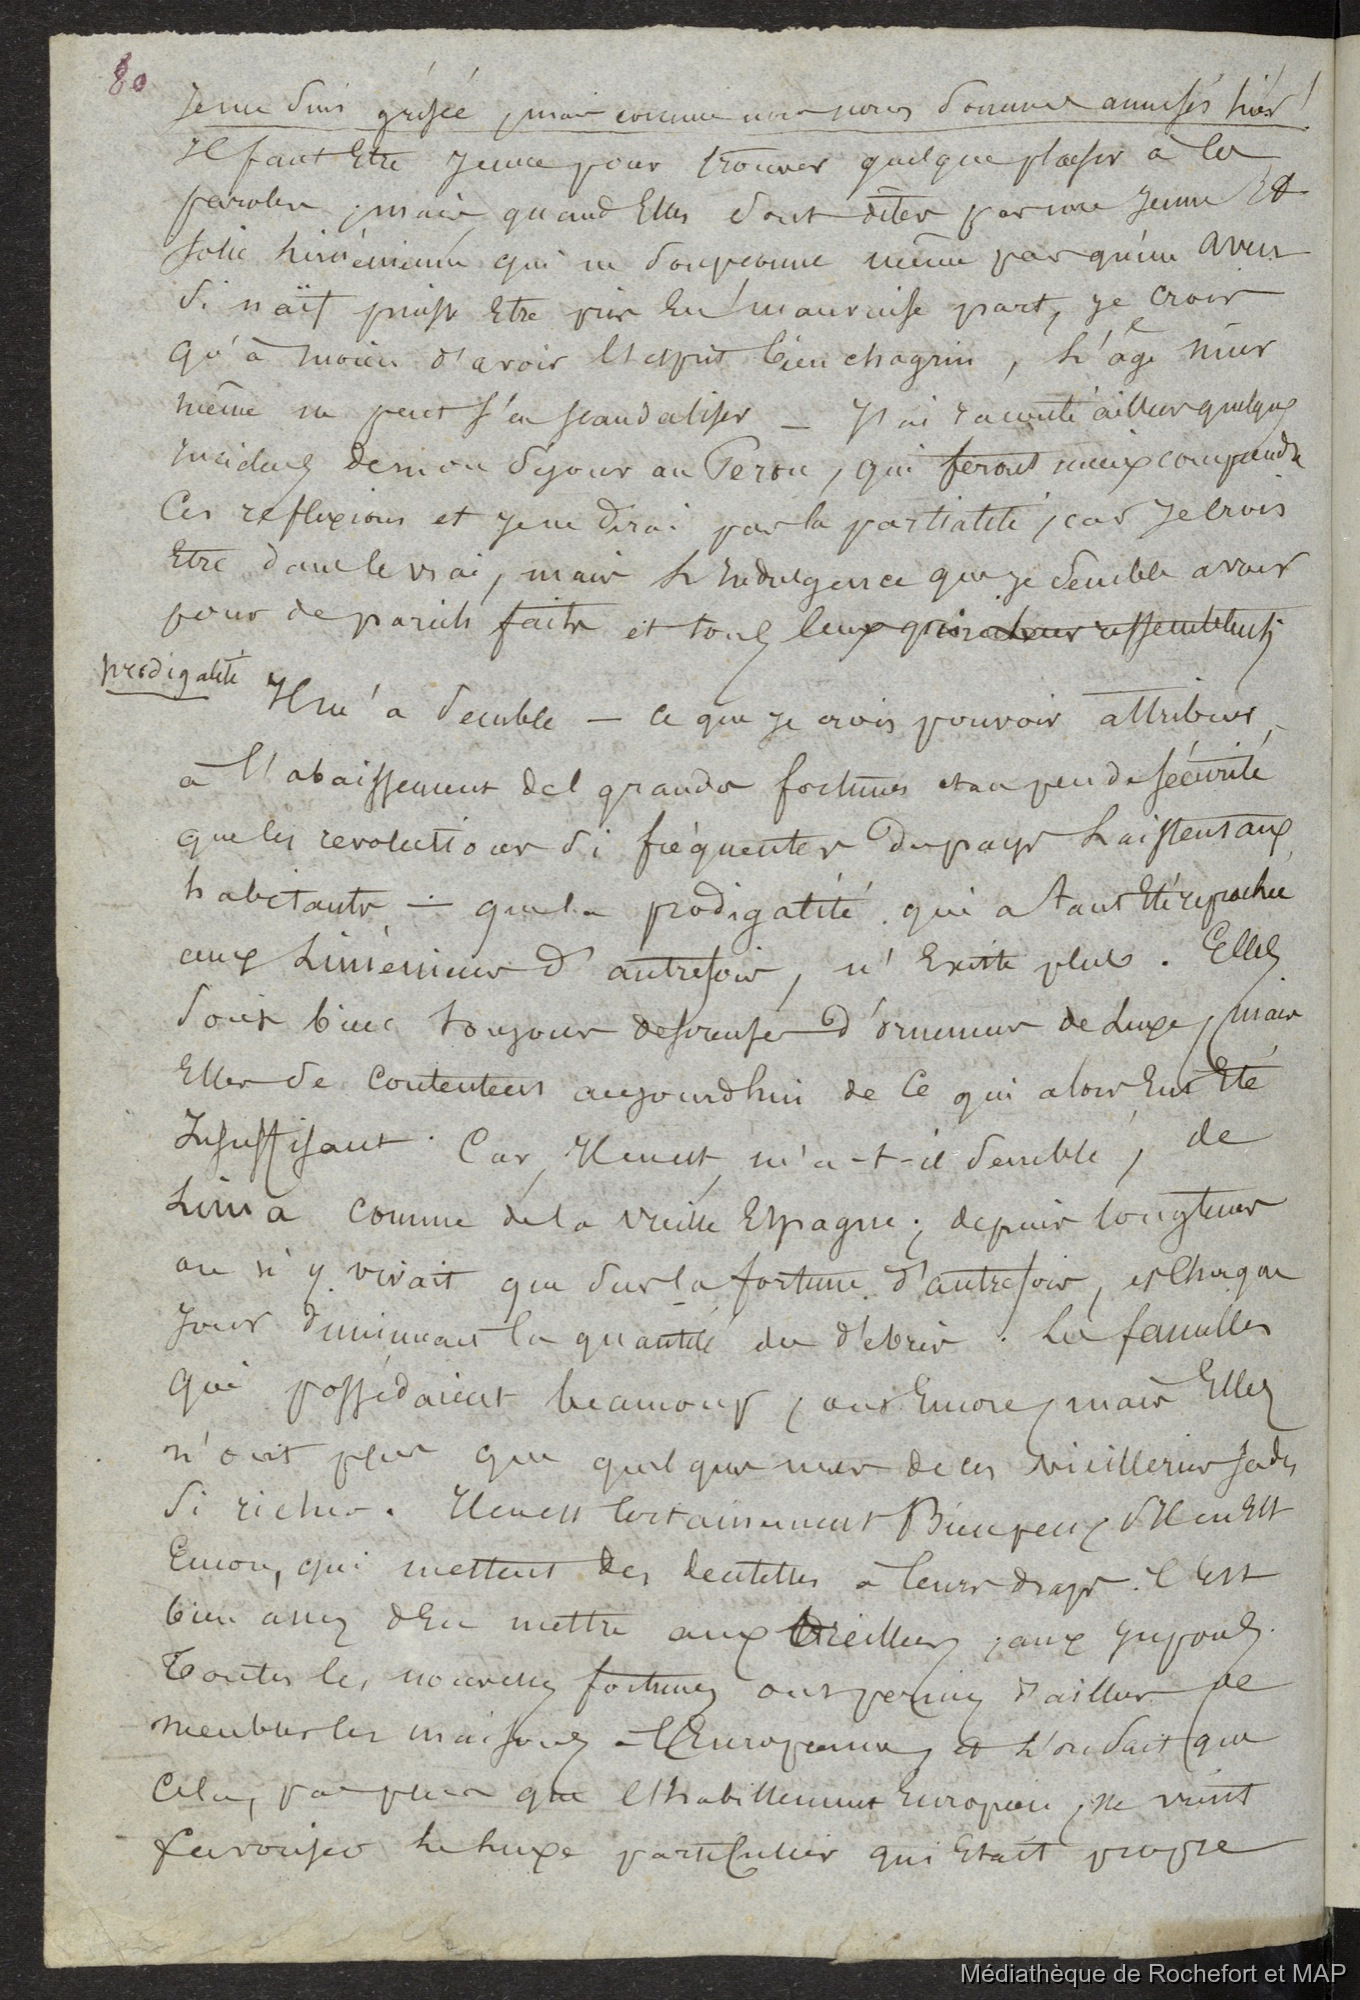 80
Je me suis grisée, mais comme nous nous sommes amusés hier!
Il faut Etre Jeune pour trouver quelque plaisir à les
paroles, mais quand Elles sont dites par une Jeune Et
Jolie liménienne qui ne soupconne même pas qu'un aveu
si naïf puisse Etre pris En mauvaise part, je crois
qu'à moins d'avoir l'Esprit bien chagrin, L'âge mûr
même ne peut s'en scandaliser — J'ai raconté ailleurs quelques
Incidens de mon séjour au Perou, qui feront mieux comprendre
Ces reflexions et je ne dirai pas la partialité, car Je crois
Etre dans le vrai, mais L'Indulgence que je semble avoir
pour de pareils faits et tous ceux qui leur ressemblent
prodigalité
Il m'a semblé — ce que je crois pouvoir attribuer
à l'abaissement des grandes fortunes et au peu de sécurité
que les revolutions si fréquentes du pays Laissent aux
habitants — que la prodigalité qui a tant Eté reprochée
aux Liméniennes d'autrefois, n'Existe plus. Elles
sont bien toujours desireuses d'ornemens de Luxe, mais
Elles se contentent aujourdhui de ce qui alors Eut Eté
Insuffisant. Car Il en est, m'a-t-il semblé, de
Lima comme de la vieille Espagne; depuis longtems
on n'y vivait que sur la fortune d'autrefois, et Chaque
Jour diminuait la quantité des débris. Les familles
qui possédaient beaucoup, ont Encore, mais Elles
n'ont plus que quelques unes de ces vieilleries Jadis
si riches. Il en est Certainement Bien peu, s'Il en Est
Encore, qui mettent des dentelles à leurs draps. C'Est
bien assez d'En mettre aux Oreillers, aux Jupons.
Toutes les nouvelles fortunes ont permis d'ailleurs de
meubler les maisons à l'Européenne, et L'on sait que
Cela, pas plus que l'habillement Européen, ne vint
favoriser le Luxe particulier qui Etait propre
Médiathèque de Rochefort et MAP